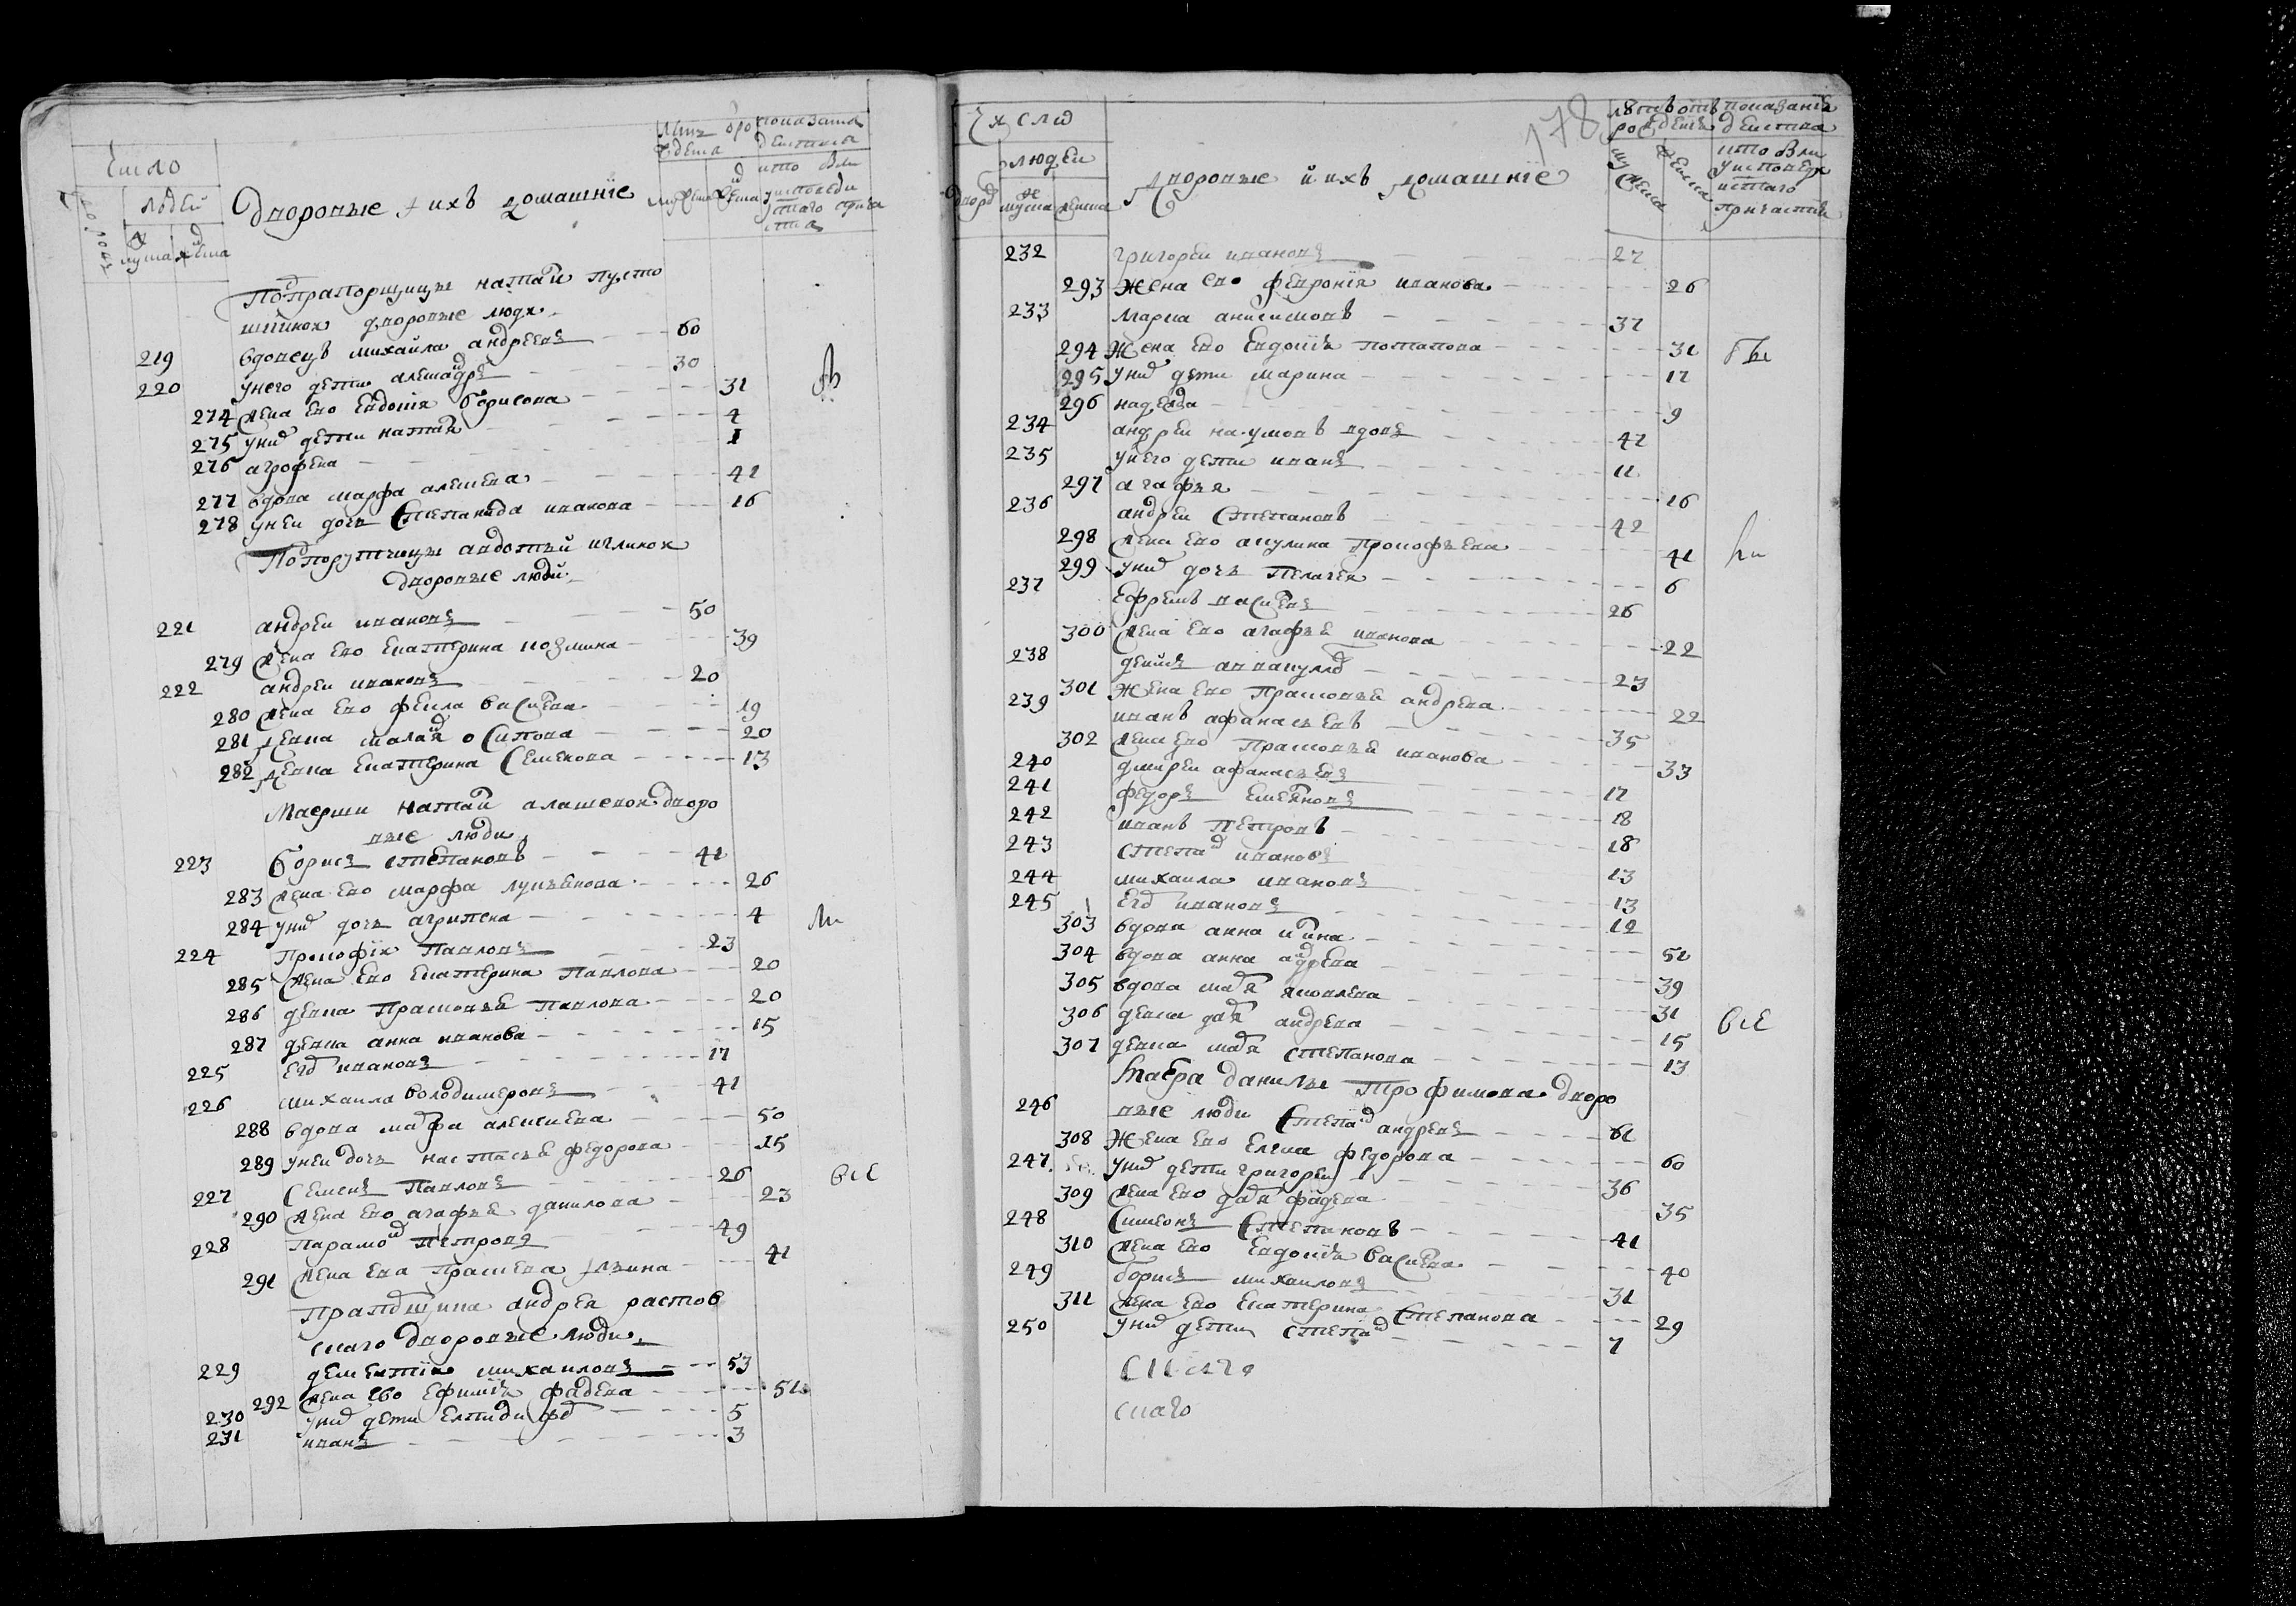 Число
людей
Дворовые и ихъ домашніе
мужеска
женска
Подпрапорщицы натали пусто
шкинои дворовые люди
219 вдовецъ михайла андреевъ 60
220 у него дети алеѯандръ 30
274 жена ево евдокия борисова 31
275 у них дети наталя 4
276 агрофена 1
277 вдова марфа алексеева 41
278 у неи дочь степанида иванова 16
Подпорутчицы авдотьи
дворовые люди
221 андреи ивановъ 50
279 жена ево екатерина козмина 39
222 андреи ивановъ 20
280 жена ево фекла васильева 19
281 девка маланя осипова 20
282 девка екатерина семенова 13
Маерши натальи алашеевои дворо
вые люди
223 борисъ степановъ 41
283 жена ево марфа лукьянова 26
284 у них дочь агрипена 4
224 прокофіи павловъ 23
285 жена ево екатерина павлова 20
286 девка прасковья павлова 20
287 девка анна иванова 15
225 егор ивановъ 17
226 михаила володимеровъ 41
288 вдова марфа алексеева 50
289 у неи дочь настасья федорова 15
227 семенъ павловъ 26
все
290 жена ево агафья данилова 23
228 парамон петровъ 49
291 жена ева прасковя ильина 41
прапорщика андрея растов
скаго дворовые люди
229 дементіи михаиловъ 53
292 жена ево ефимія фадеева 51
230 у них дети елпидифор 5
231 иванъ 3
178
Число
людей
дворовъ мужеска женска
дворовые и ихъ домашніе
летъ отъ рожденія
показаніе действа
кто был у исповеди и стаго причастия
232 григореи ивановъ 27
293 жена ево феврония иванова 26
233 марка анисимовъ 37
294 жена ево евдокия потапова 31 бы
295 у них дети марина 17
296 надежда 9
234 андреи наумовъ вдовъ 47
235 у него дети иванъ 11
297 агафья 16
236 андреи степановъ 42
298 жена ево акулина прокофьева 41 ли
299 у них дочь пелагея 6
237 ефремъ васильевъ 26
300 жена ево агафья иванова 22
238 денисъ аввакумов 23
301 жена ево прасковья андреева 22
239 иванъ афанасьевъ 35
302 жена ево прасковья иванова 33
240 дмитреи афанасьевъ 17
241 федоръ емельяновъ 18
242 иванъ петровъ 18
243 степан ивановъ 13
244 михаила ивановъ 13
245 егор ивановъ 12
303 вдова анна ильина 51
304 вдова анна андреева 39
305 вдова марья яковлева 31
306 девка дарья андреева 15 все
307 девка марья степанова 13
маеора данилы трофимова дворо
246 вые люди степан андреевъ 61
308 жена ево елена федорова 60
247 у них дети григореи 36
309 жена ево дарья фадеева 35
248 симеонъ степановъ 41
310 жена ево евдокия васильева 40
249 борисъ михаиловъ 31
311 жена ево екатерина степанова 29
250 у них дети степан 7
скаго